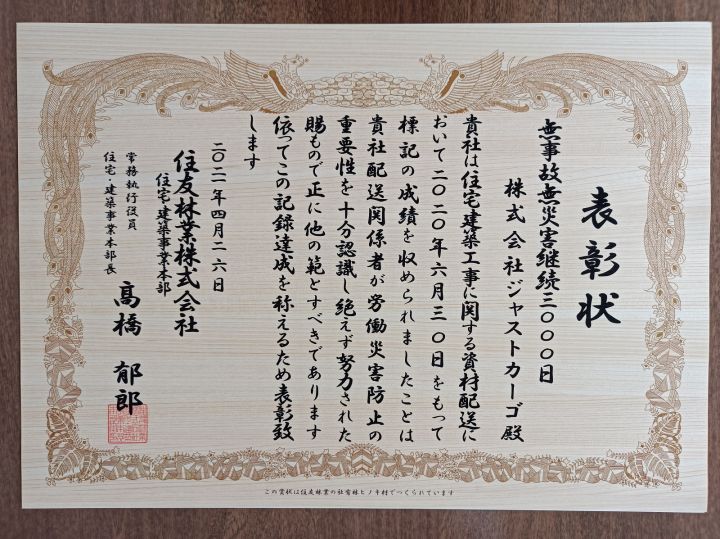 表彰状
無事故無災害継続三〇〇〇日
株式会社ジャストカーゴ殿
貴社は住宅建築工事に関する資材配送に
おいて二〇二〇年六月三〇日をもって
標記の成績を収められましたことは
貴社配送関係者が労働災害防止の
重要性を十分認識し絶えず努力された
賜もので正に他の範とすべきであります
依ってこの記録達成を称えるため表彰致
します
二〇二一年四月二六日
住友林業株式会社
住宅・建築事業本部
常務執行役員
住宅・建築事業本部長
高橋 郁郎
この賞状は住友林業の社有林ヒノキ材でつくられています